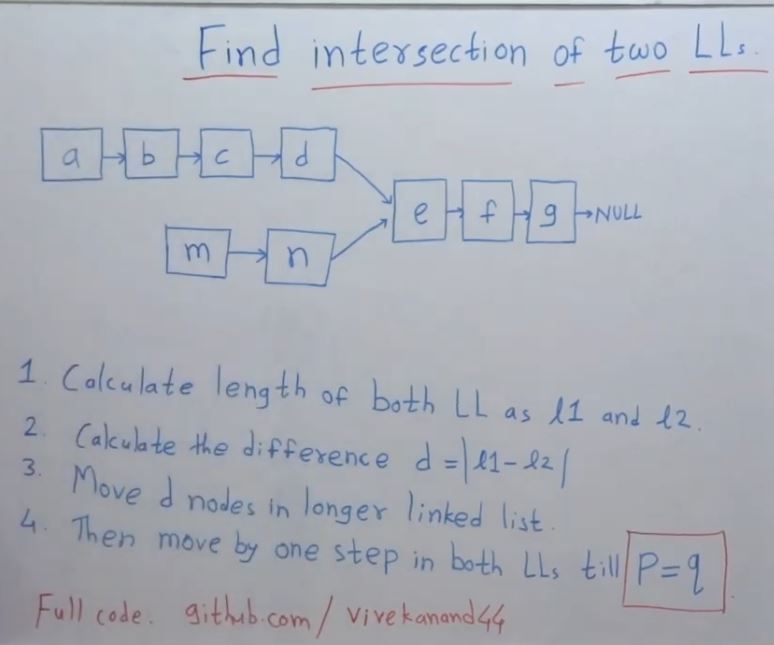 Find intersection of two LLs.
a b c d
e f g NULL
m n
1. Calculate length of both LL as l1 and l2.
2. Calculate the difference d = |l1 - l2|
3. Move d nodes in longer linked list.
4. Then move by one step in both LLs till P=q.
Full code. github.com/vivekanand44